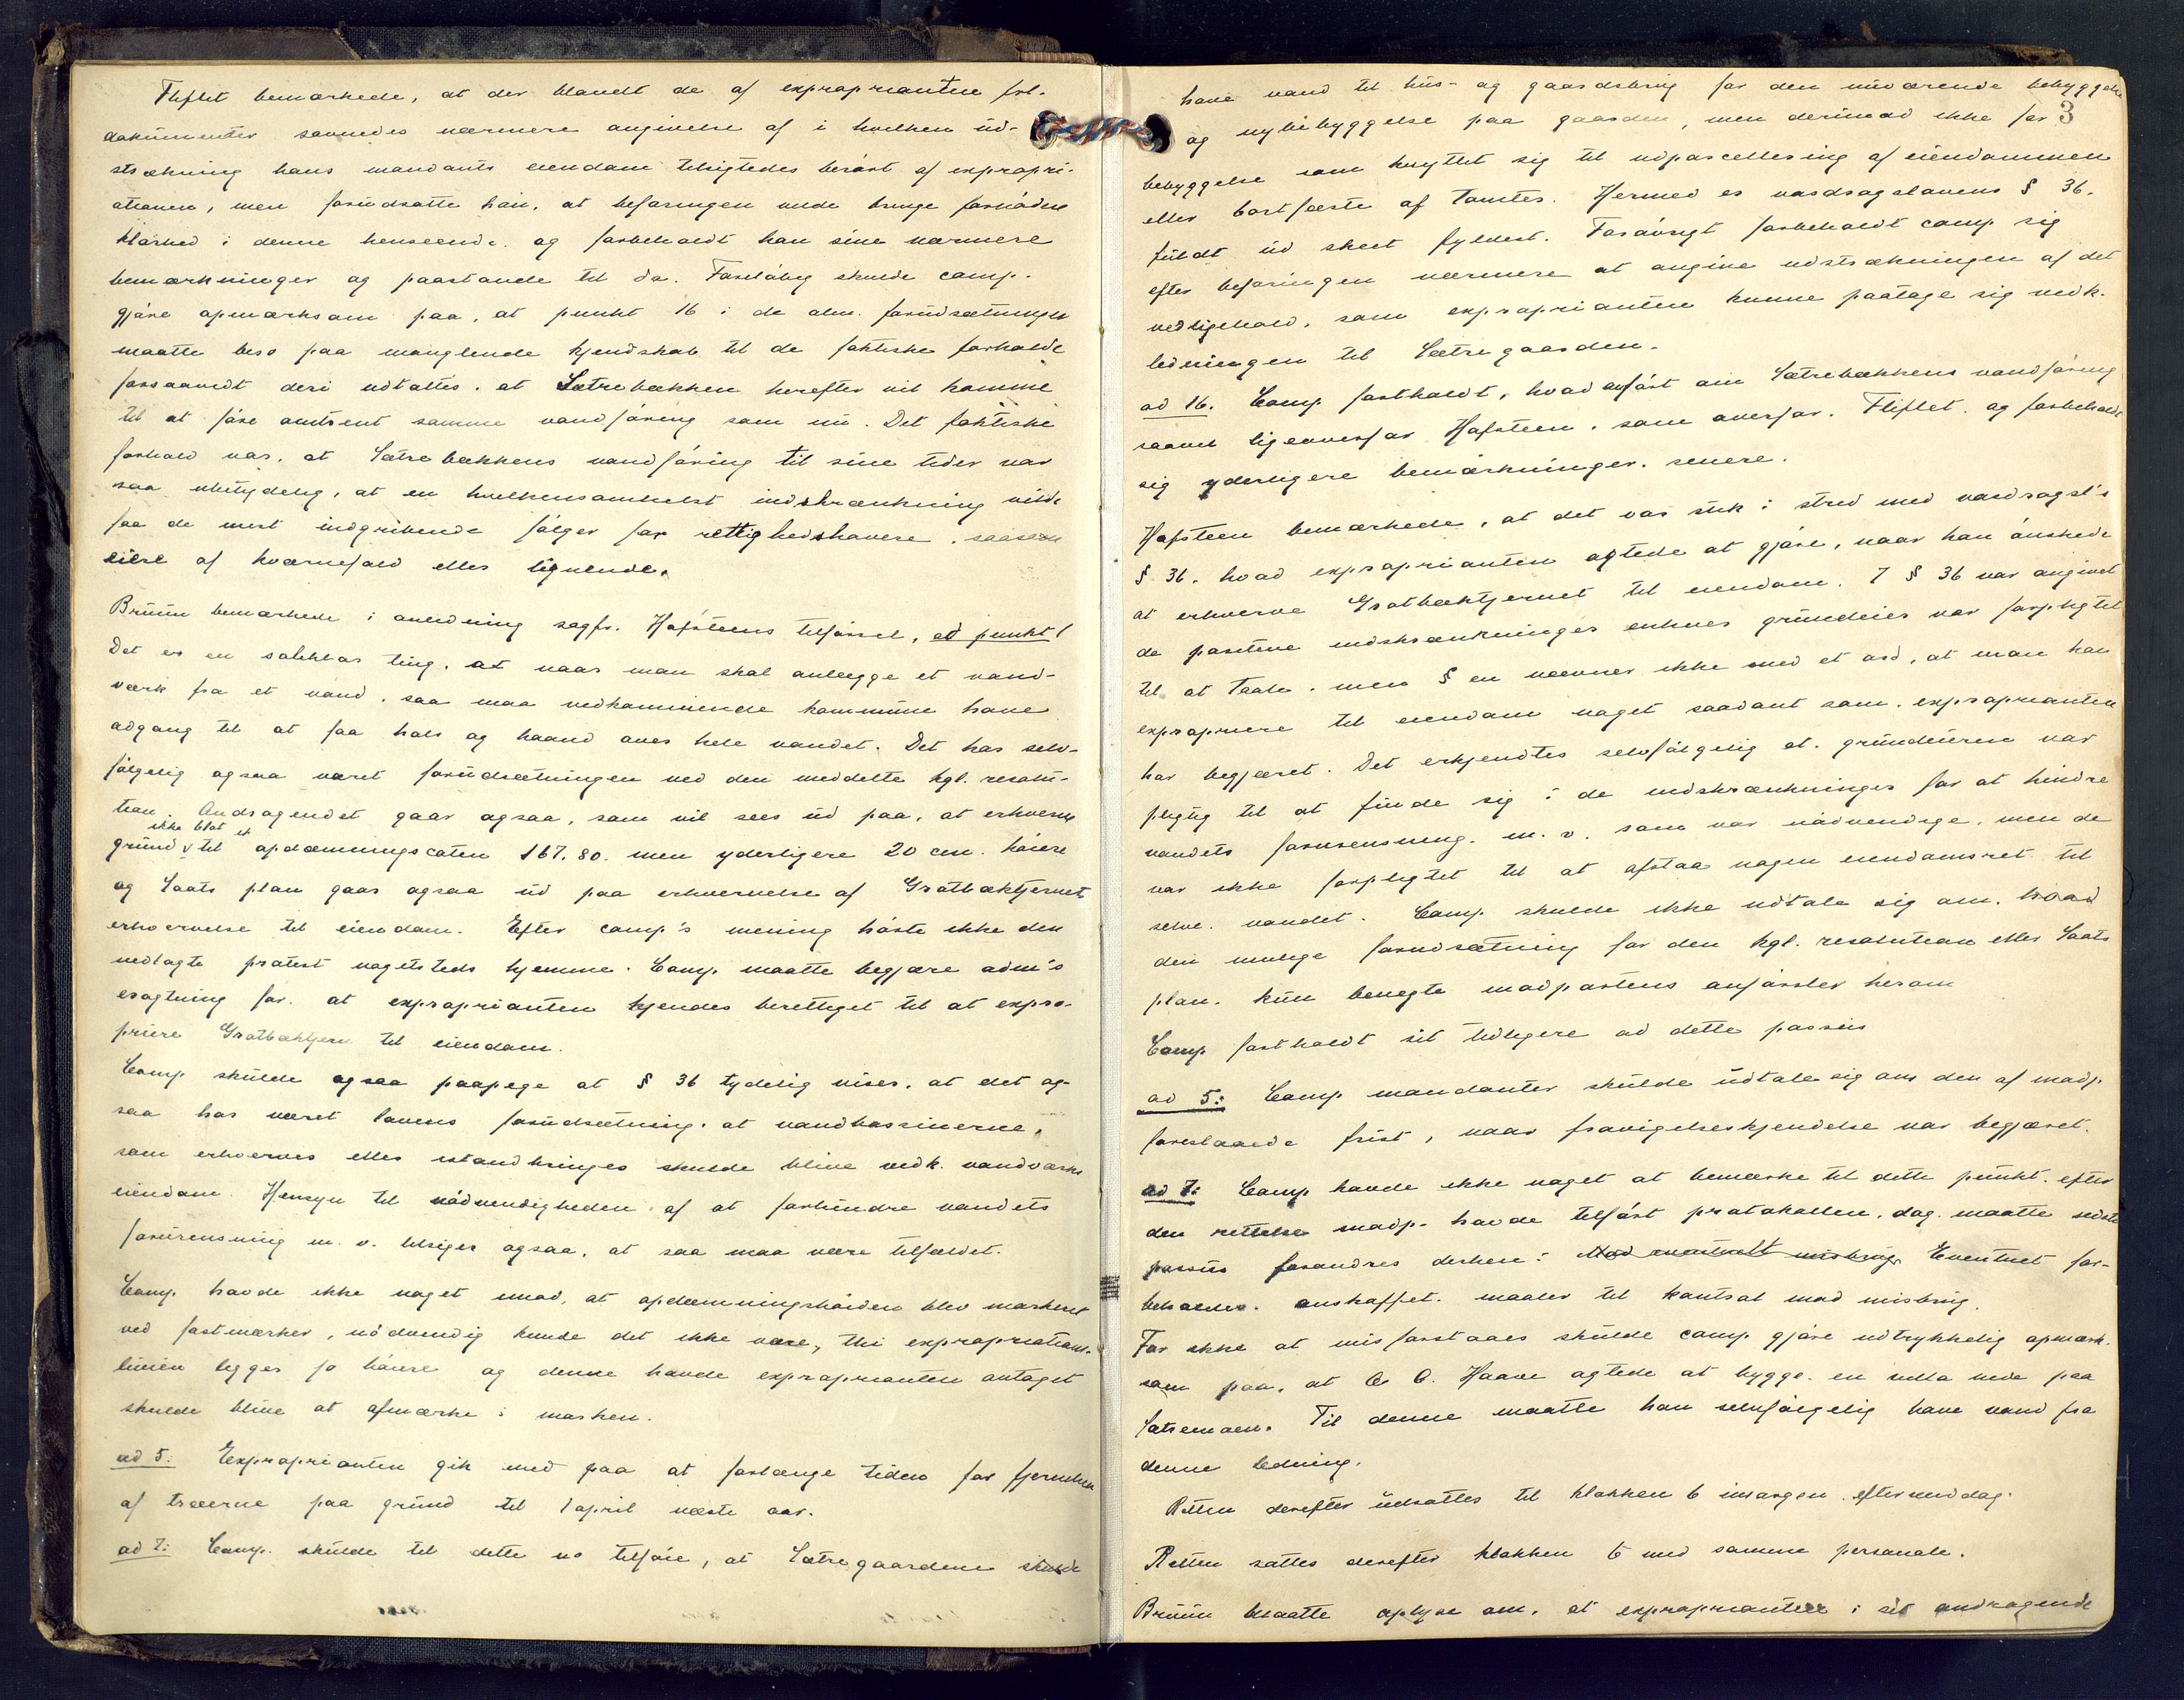 Fliflet bemærkede, at der blandt de af exproprianten frl.
dokumenter savnedes nærmere angivelse af i hvilken ud-
strækning hans mandants eiendom tilsigtedes berørt af expropri-
ationen, men forudsatte han, at befaringen vilde bringe fornøden
klarhed i denne henseende og forbeholdt han sine nærmere
bemærkninger og paastande til da. Foreløbig skulde comp.
gjøre opmærksom paa, at punkt 16 i de alm. forudsætninger
maatte bero paa manglende kjendskab til de faktiske forholde
forsaavidt deri udtaltes, at Sætrebækken herefter vil komme
til at føre omtrent samme vandføring som nu. Det faktiske
forhold var, at Sætrebækkens vandføring til sine tider var
saa ubetydelig, at en hvilkensomhelst indskrænkning vilde
faa de mest indgribende følger for rettighedshavere, saasom
eiere af kværnefald eller lignende.
Bruun bemærkede i anledning sagfr. Hafsteens tilførsel, ad punkt 1
Det er en soleklar ting, at naar man skal anlægge et vand-
værk fra et vand, saa maa vedkommende kommune have
adgang til at faa hals og haand over hele vandet. Det har selv-
følgelig ogsaa været forudsætningen ved den meddelte kgl. resolu-
tion. Andragendet gaar ogsaa, som vil sees ud paa, at erhverve
ikke blot et
grund v til opdæmningscoten 167.80. men yderligere 20 cm. høiere
og Saats plan gaar ogsaa ud paa erhvervelse af Gratbæktjernets
erhvervelse til eiendom. Efter comp's mening hørte ikke den
nedlagte protest nogetsteds hjemme. Comp. maatte begjære adm's
eragtning for, at exproprianten kjendes berettiget til at expro-
priere Gratbæktjern til eiendom.
Comp skulde ogsaa paapege at § 36 tydelig viser, at det og-
saa har været lovens forudsætning, at vandbassinerne,
som erhverves eller istandbringes skulde blive vedk. vandværks
eiendom. Hensyn til nødvendigheden af at forhindre vandets
forurensning m. v. tilsiger ogsaa, at saa maa være tilfældet.
Comp. havde ikke noget imod, at opdæmningshøiden blev markeret
ved fastmærker, nødvendig kunde det ikke være, thi expropriations-
linien legges jo høiere og denne havde exproprianten antaget
skulde blive at afmærke i marken.
ad 5: Exproprianten gik med paa at forlænge tiden for fjernelsen
af træerne paa grund til 1 april næste aar.
ad 7: Comp. skulde til dette no tilføie, at Sætregaardene skulde
3
have vand til hus- og gaardsbrug for den nuværende bebyggelse
og nybebyggelse paa gaarden, men derimod ikke for
bebyggelse som knyttet sig til udparcellering af eiendommen
eller bortfæste af tomter. Hermed er vasdragslovens § 36.
fuldt ud skeet fyldest. Forøvrigt forbeholdt comp sig
efter befaringen nærmere at angive udstrækningen af det
vedligehold, som exproprianten kunne paatage sig vedk.
ledningen til Sætregaarden.
ad 16. Comp fastholdt, hvad anført om Sætrebækkens vandføring
saavel ligeoverfor Hafsteen, som overfor. Fliflet. og forbeholdt
sig yderligere bemærkninger. senere.
Hafsteen bemærkede, at det var stik i strid med vasdragsl's
§ 36. hvad exproprianten agtede at gjøre, naar han ønskede
at erhverve Gratbæktjernet til eiendom. I § 36 var angivet
de positive indskrænkninger enhver grundeier var forpligtet
til at taale. men § en nævner ikke med et ord, at man kan
expropriere til eiendom noget saadant som. exproprianten
har begjæret. Det erkjendtes selvfølgelig at. grundeieren var
pligtig til at finde sig i de indskrænkninger for at hindre
vandets forurensning. m. v. som var nødvendige, men de
var ikke forpligtet til at afstaa nogen eiendomsret til
selve. vandet. Comp. skulde ikke udtale sig om. hvad
den mulige forudsætning for den kgl. resolution eller Saats
plan. kun benegte modpartens anførsler herom
Comp fastholdt sit tidligere ad dette passus
ad 5: Comp mandanter skulde udtale sig om den af modp.
foreslaaede frist, naar fravigelseskjendelse var begjæret.
ad 7: Comp havde ikke noget at bemærke til dette punkt. efter
den rettelse modp. havde tilført protokollen, dog. maatte sidste
passus forandres derhen: Mod eventuelt misbrug Eventuet for-
beholdes. anskaffet. maaler til kontrol mod misbrug.
For ikke at misforstaaes skulde comp gjøre udtrykkelig opmærk-
som paa, at O. O. Haave agtede at bygge. en villa nede paa
Sætremoen. Til denne maatte han selvfølgelig have vand fra
denne ledning.
Retten derefter udsattes til klokken 6 imorgen eftermiddag.
Retten sattes derefter klokken 6 med samme personale.
Bruun maatte oplyse om, at exproprianten i sit andragende